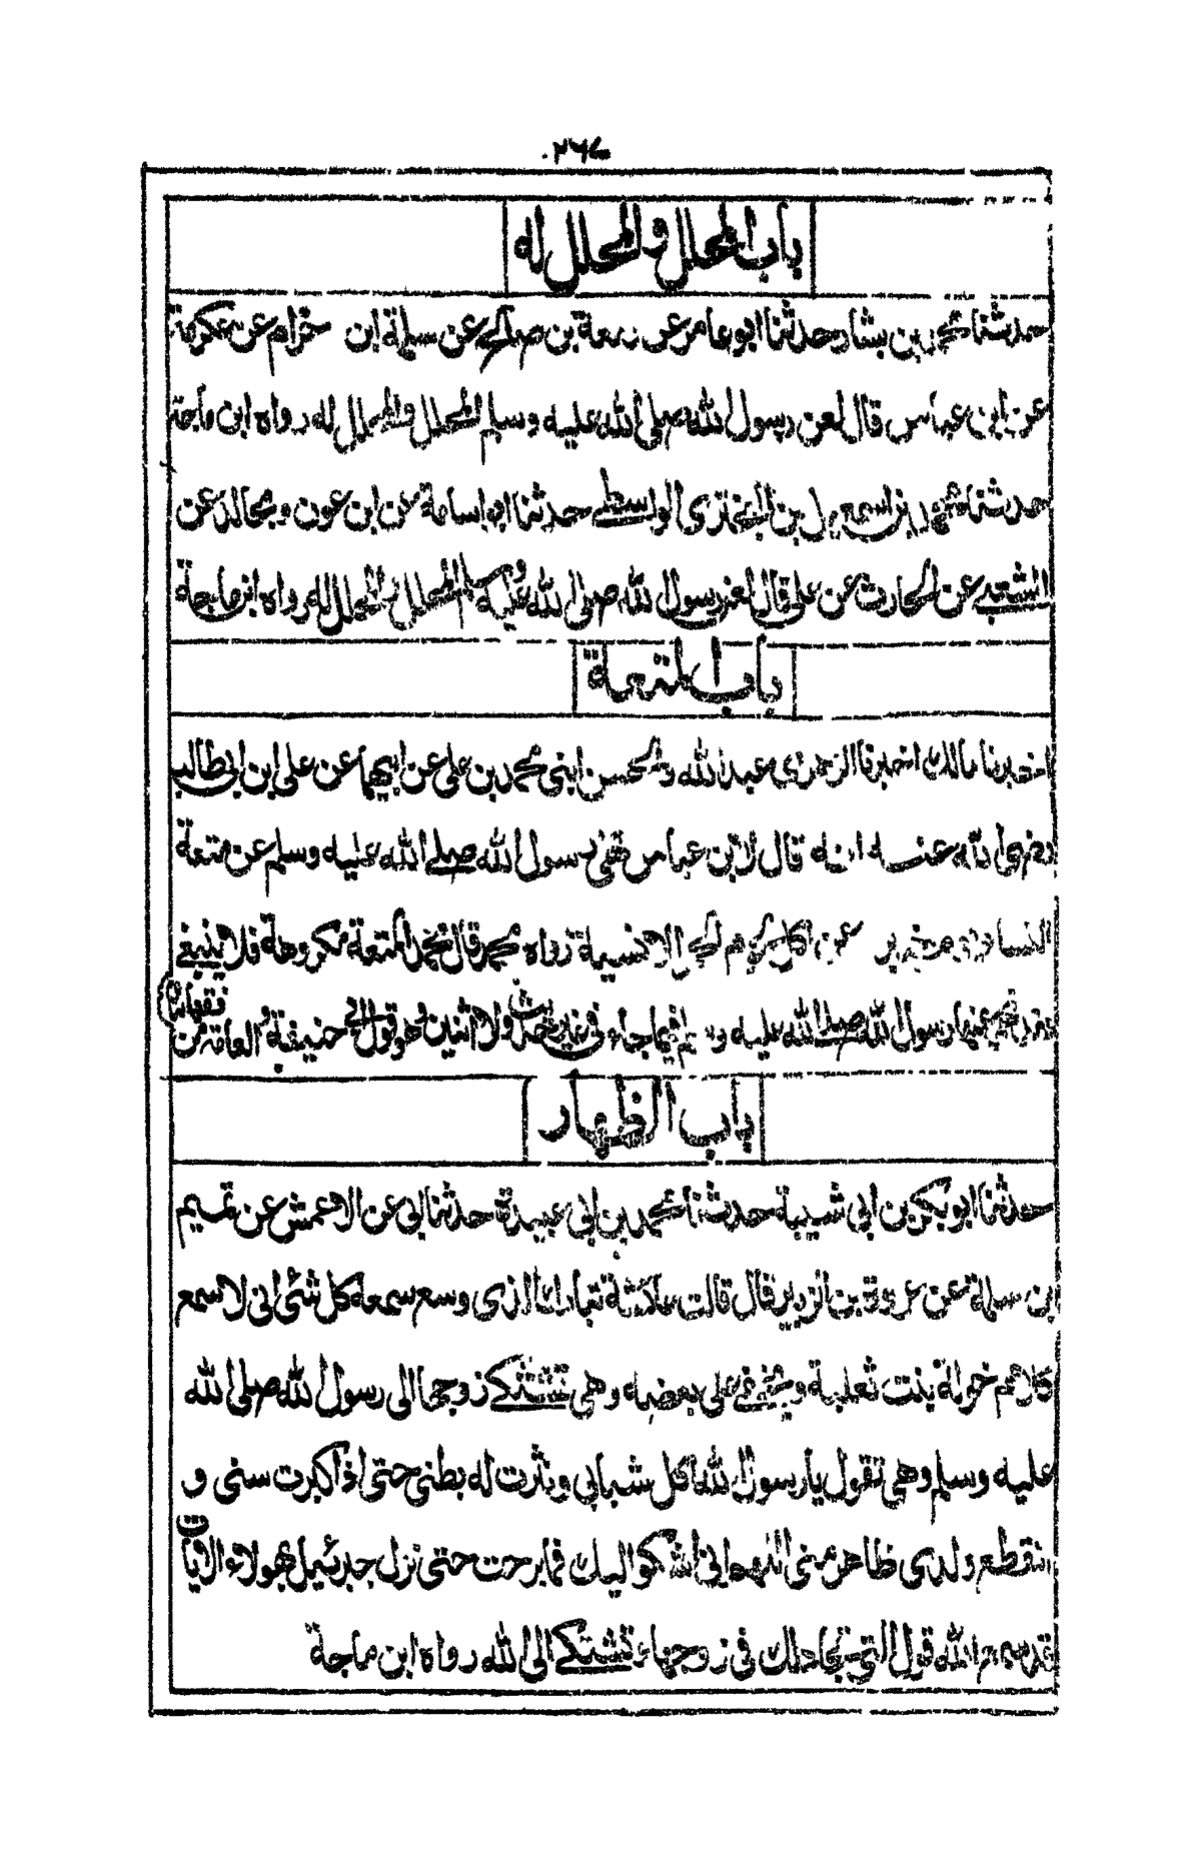 ٢٦٧
باب المحلل والمحلل له
حدثنا محمد بن بشار حدثنا ابو عامر عن زمعة بن صالح عن سلمة ابن خرام عن عكرمة
عن ابن عباس قال لعن رسول الله صلى الله عليه وسلم المحلل والمحلل له رواه ابن ماجة
حدثنا محمد بن اسمعيل بن البختري الواسطي حدثنا ابو اسامة عن ابن عون ومجالد عن
الشعبي عن الحارث عن علي قال لعن رسول الله صلى الله عليه وسلم المحلل والمحلل له رواه ابن ماجة
باب المتعة
اخبرنا مالك اخبرنا الزهري عبد الله والحسن ابني محمد بن علي عن ابيهما عن علي ابن ابي طالب
رضي الله عنه انه قال لابن عباس نهى رسول الله صلى الله عليه وسلم عن متعة
النساء يوم خيبر وعن اكل لحوم الحمر الانسية رواه محمد قال محمد المتعة مكروهة فلا ينبغي
فقد نهى عنها رسول الله صلى الله عليه وسلم فيما جاء في غير حديث ولا اثنين وهو قول ابي حنيفة والعامة من فقهائنا
باب الظهار
حدثنا ابو بكر بن ابي شيبة حدثنا محمد بن ابي عبيدة حدثنا ابي عن الاعمش عن تميم
بن سلمة عن عروة بن الزبير قال قالت عائشة تبارك الذي وسع سمعه كل شئ اني لاسمع
كلام خولة بنت ثعلبة ويخفى علي بعضه وهي تشتكي زوجها الى رسول الله صلى الله
عليه وسلم وهي تقول يا رسول الله اكل شبابي ونثرت له بطني حتى اذا كبرت سني و
انقطع ولدي ظاهر مني اللهم اني اشكو اليك فما برحت حتى نزل جبرئيل بهولاء الايات
قد سمع الله قول التي تجادلك في زوجها وتشتكي الى الله رواه ابن ماجة